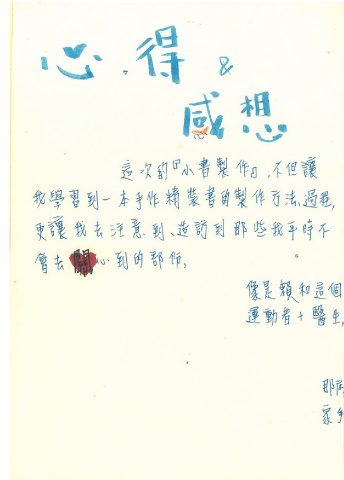 心得 &
感想
這次的『小書製作』,不但讓
我學習到一本手作精裝書的製作方法,過程,
更讓我去注意到、造訪到那些我平時不
會去關心到的部份,
像是賴和這個
運動者+醫生,
那
家鄉